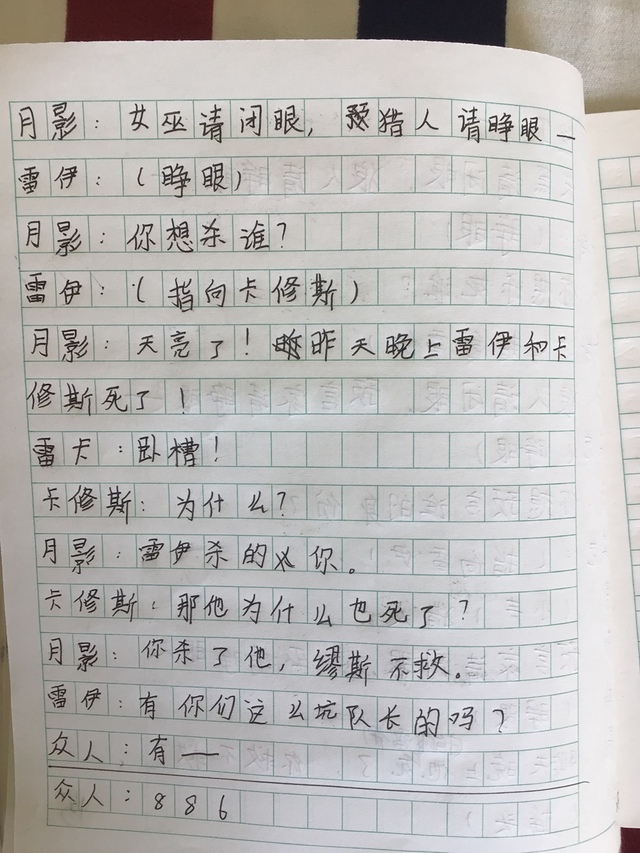 月影：女巫请闭眼，猎人请睁眼—
雷伊：（睁眼）
月影：你想杀谁？
雷伊：（指向卡修斯）
月影：天亮了！昨天晚上雷伊和卡
修斯死了！
雷卡：卧槽！
卡修斯：为什么？
月影：雷伊杀的你。
卡修斯：那他为什么也死了？
月影：你杀了他，缪斯不救。
雷伊：有你们这么坑队长的吗？
众人：有——
众人：886